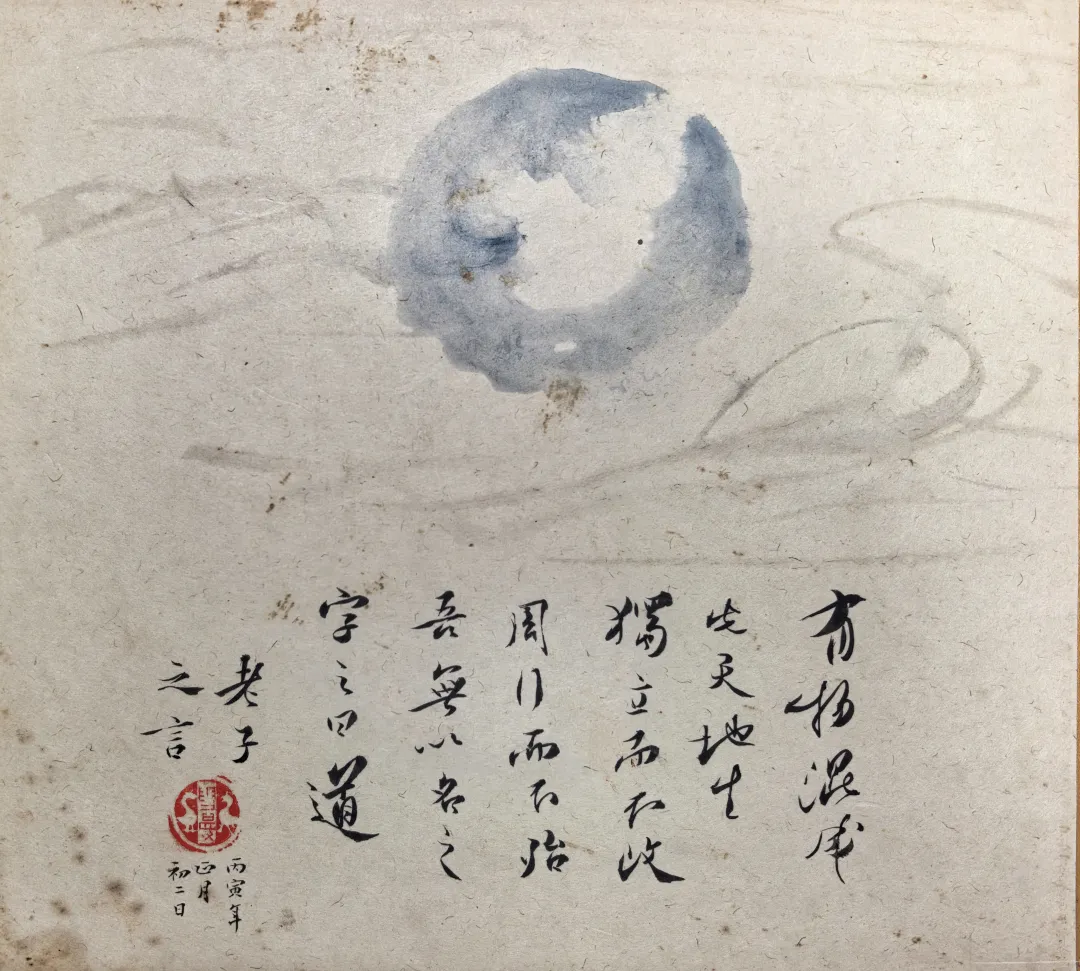 有物混成
先天地生
獨立而不改
周行而不殆
吾無以名之
字之曰道
老子
之言
丙寅年
正月
初二日